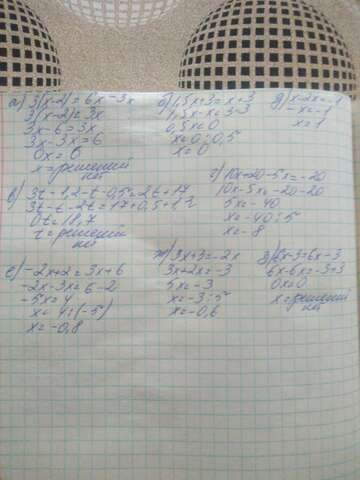 а) 3(x-2)=6x-3x
3(x-2)=3x
3x-6=3x
3x-3x=6
0x=6
x=решений
нет
б) 1,5x+3=x+3
1,5x-x=3-3
0,5x=0
x=0:0,5
x=0
д) x-2x=-1
-x=-1
x=1
в) 3t-1,2-t-0,5=2t+17
3t-t-2t=17+0,5+1,2
0t=18,7
t=решений
нет
г) 10x+20-5x=-20
10x-5x=-20-20
5x=-40
x=-40:5
x=-8
е) -2x+2=3x+6
-2x-3x=6-2
-5x=4
x=4:(-5)
x=-0,8
ж) 3x+3=-2x
3x+2x=-3
5x=-3
x=-3:5
x=-0,6
6x-3=6x-3
6x-6x=-3+3
0x=0
x=решений